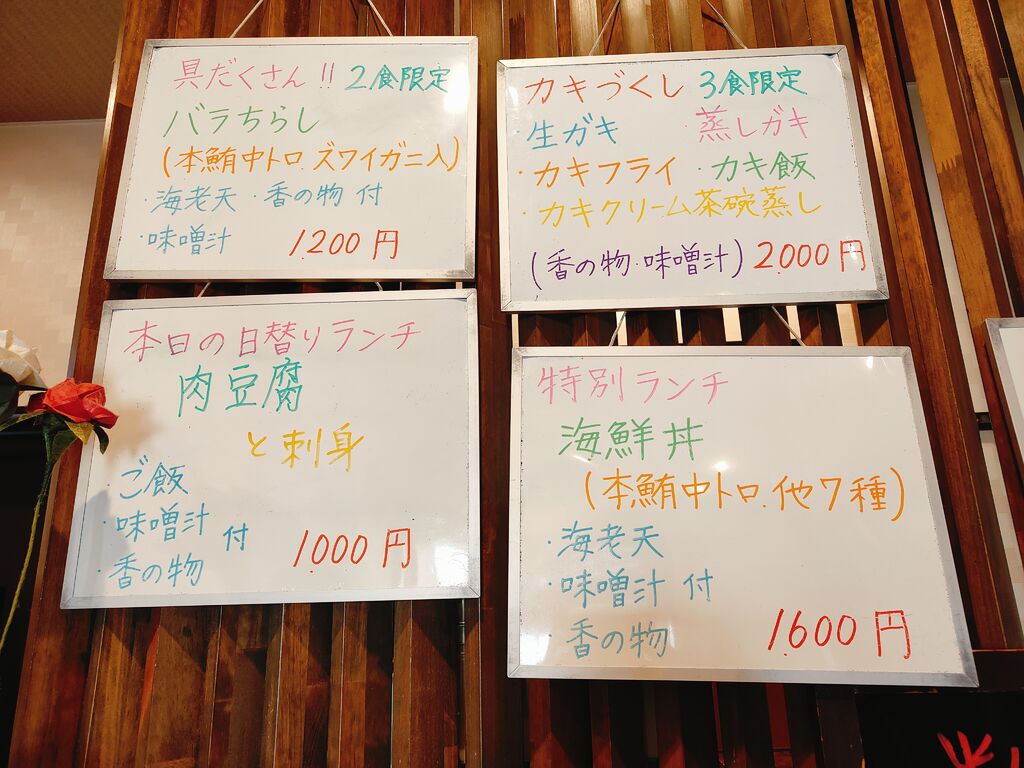 具だくさん!! 2食限定
バラちらし
(本鮪中トロ.ズワイガニ入)
・海老天 ・香の物 付
・味噌汁 1.200円
カキづくし 3食限定
・生ガキ ・蒸しガキ
・カキフライ ・カキ飯
・カキクリーム茶碗蒸し
(香の物・味噌汁) 2.000円
本日の日替りランチ
肉豆腐
と刺身
・ご飯
・味噌汁 付
・香の物 1.000円
特別ランチ
海鮮丼
(本鮪中トロ.他7種)
・海老天
・味噌汁 付
・香の物 1.600円